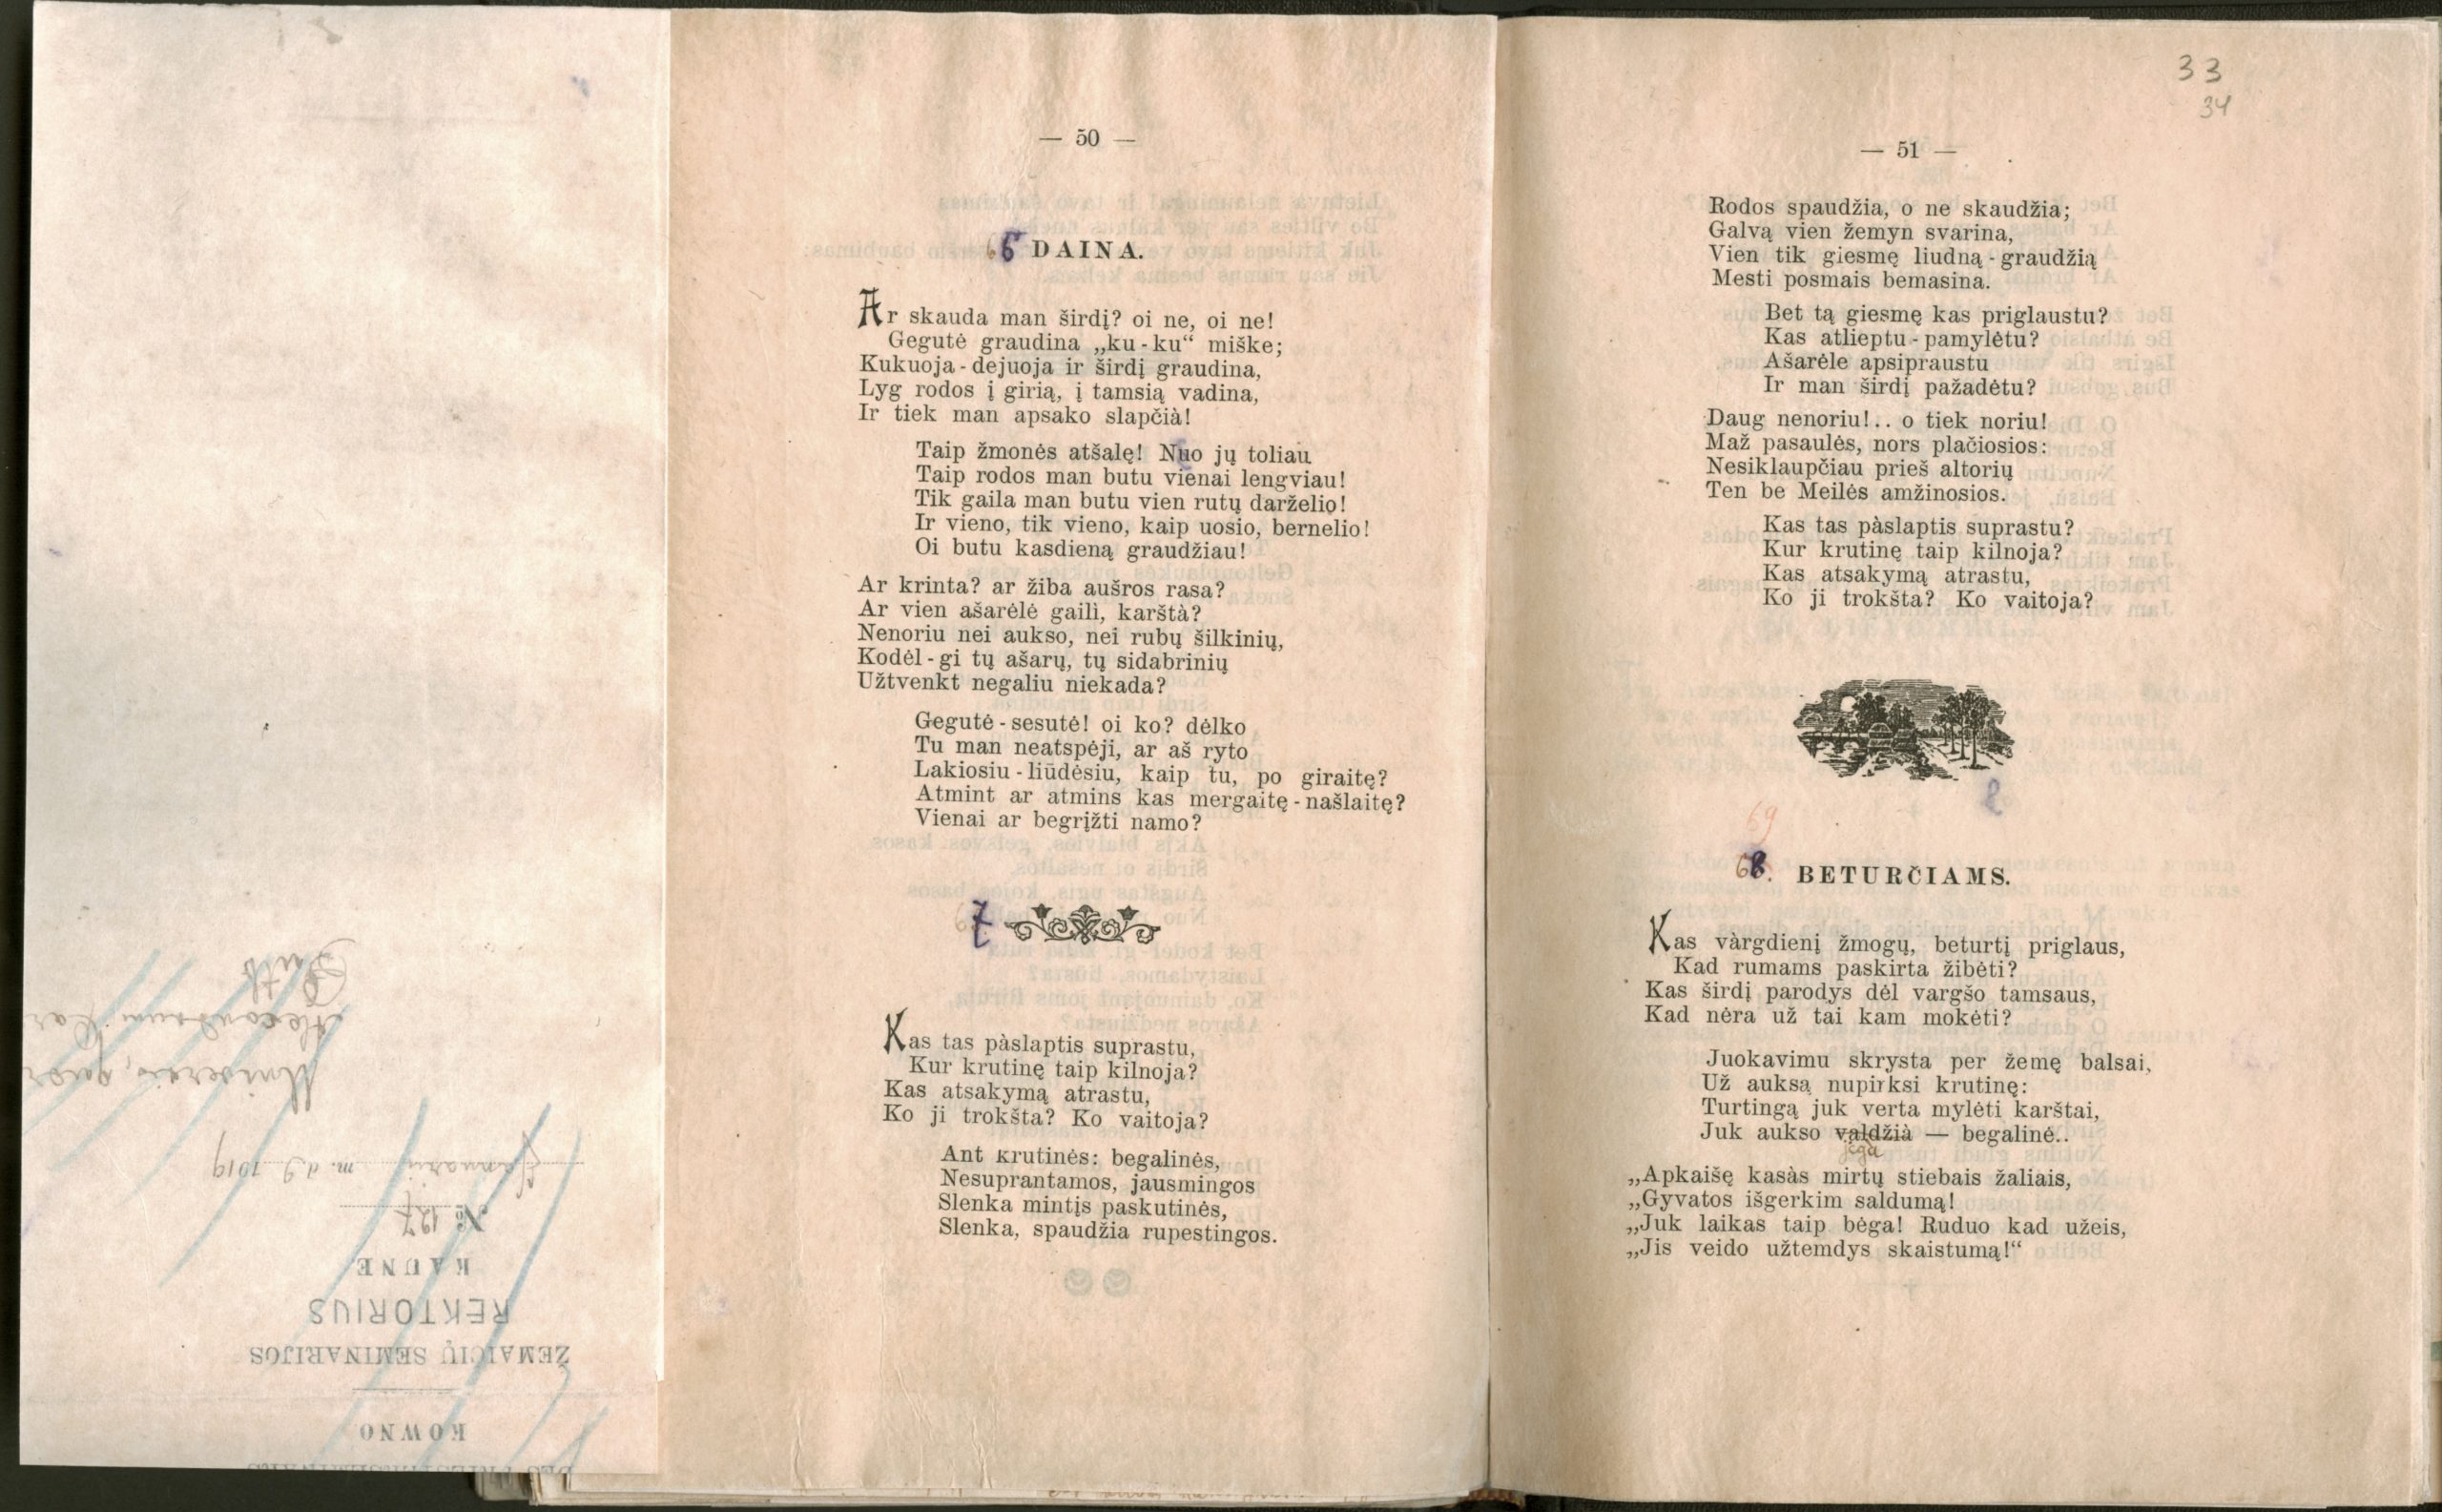 — 50 —
66 DAINA.
Ar skauda man širdį? oi ne, oi ne!
Gegutė graudina „ku-ku“ miške;
Kukuoja-dejuoja ir širdį graudina,
Lyg rodos į girią, į tamsią vadina,
Ir tiek man apsako slapčià!
Taip žmonės atšalę! Nuo jų toliau
Taip rodos man butu vienai lengviau!
Tik gaila man butu vien rutų darželio!
Ir vieno, tik vieno, kaip uosio, bernelio!
Oi butu kasdieną graudžiau!
Ar krinta? ar žiba aušros rasa?
Ar vien ašarėlė gaili, karštà?
Nenoriu nei aukso, nei rubų šilkinių,
Kodėl-gi tų ašarų, tų sidabrinių
Užtvenkt negaliu niekada?
Gegutė-sesutė! oi ko? dėlko
Tu man neatspėji, ar aš ryto
Lakiosiu-liūdėsiu, kaip tu, po giraitę?
Atmint ar atmins kas mergaitę-našlaitę?
Vienai ar begrįžti namo?
7
Kas tas pàslaptis suprastu,
Kur krutinę taip kilnoja?
Kas atsakymą atrastu,
Ko ji trokšta? Ko vaitoja?
Ant krutinės: begalinės,
Nesuprantamos, jausmingos
Slenka mintįs paskutinės,
Slenka, spaudžia rupestingos.
33
34
— 51 —
Rodos spaudžia, o ne skaudžia;
Galvą vien žemyn svarina,
Vien tik giesmę liudną-graudžią
Mesti posmais bemasina.
Bet tą giesmę kas priglaustu?
Kas atlieptu-pamylėtu?
Ašarėle apsipraustu
Ir man širdį pažadėtu?
Daug nenoriu!.. o tiek noriu!
Maž pasaulės, nors plačiosios:
Nesiklaupčiau prieš altorių
Ten be Meilės amžinosios.
Kas tas pàslaptis suprastu?
Kur krutinę taip kilnoja?
Kas atsakymą atrastu,
Ko ji trokšta? Ko vaitoja?
69
68. BETURČIAMS.
Kas vàrgdienį žmogų, beturtį priglaus,
Kad rumams paskirta žibėti?
Kas širdį parodys dėl vargšo tamsaus,
Kad nėra už tai kam mokėti?
Juokavimu skrysta per žemę balsai,
Už auksą nupirksi krutinę:
Turtingą juk verta mylėti karštai,
Juk aukso valdžià — begalinė..
jėga
„Apkaišę kasàs mirtų stiebais žaliais,
„Gyvatos išgerkim saldumą!
„Juk laikas taip bėga! Ruduo kad užeis,
„Jis veido užtemdys skaistumą!“
KOWNO
ŽEMAIČIŲ SEMINARIJOS
REKTORIUS
KAUNE
№ 127
Januarij m. d. 9 1919